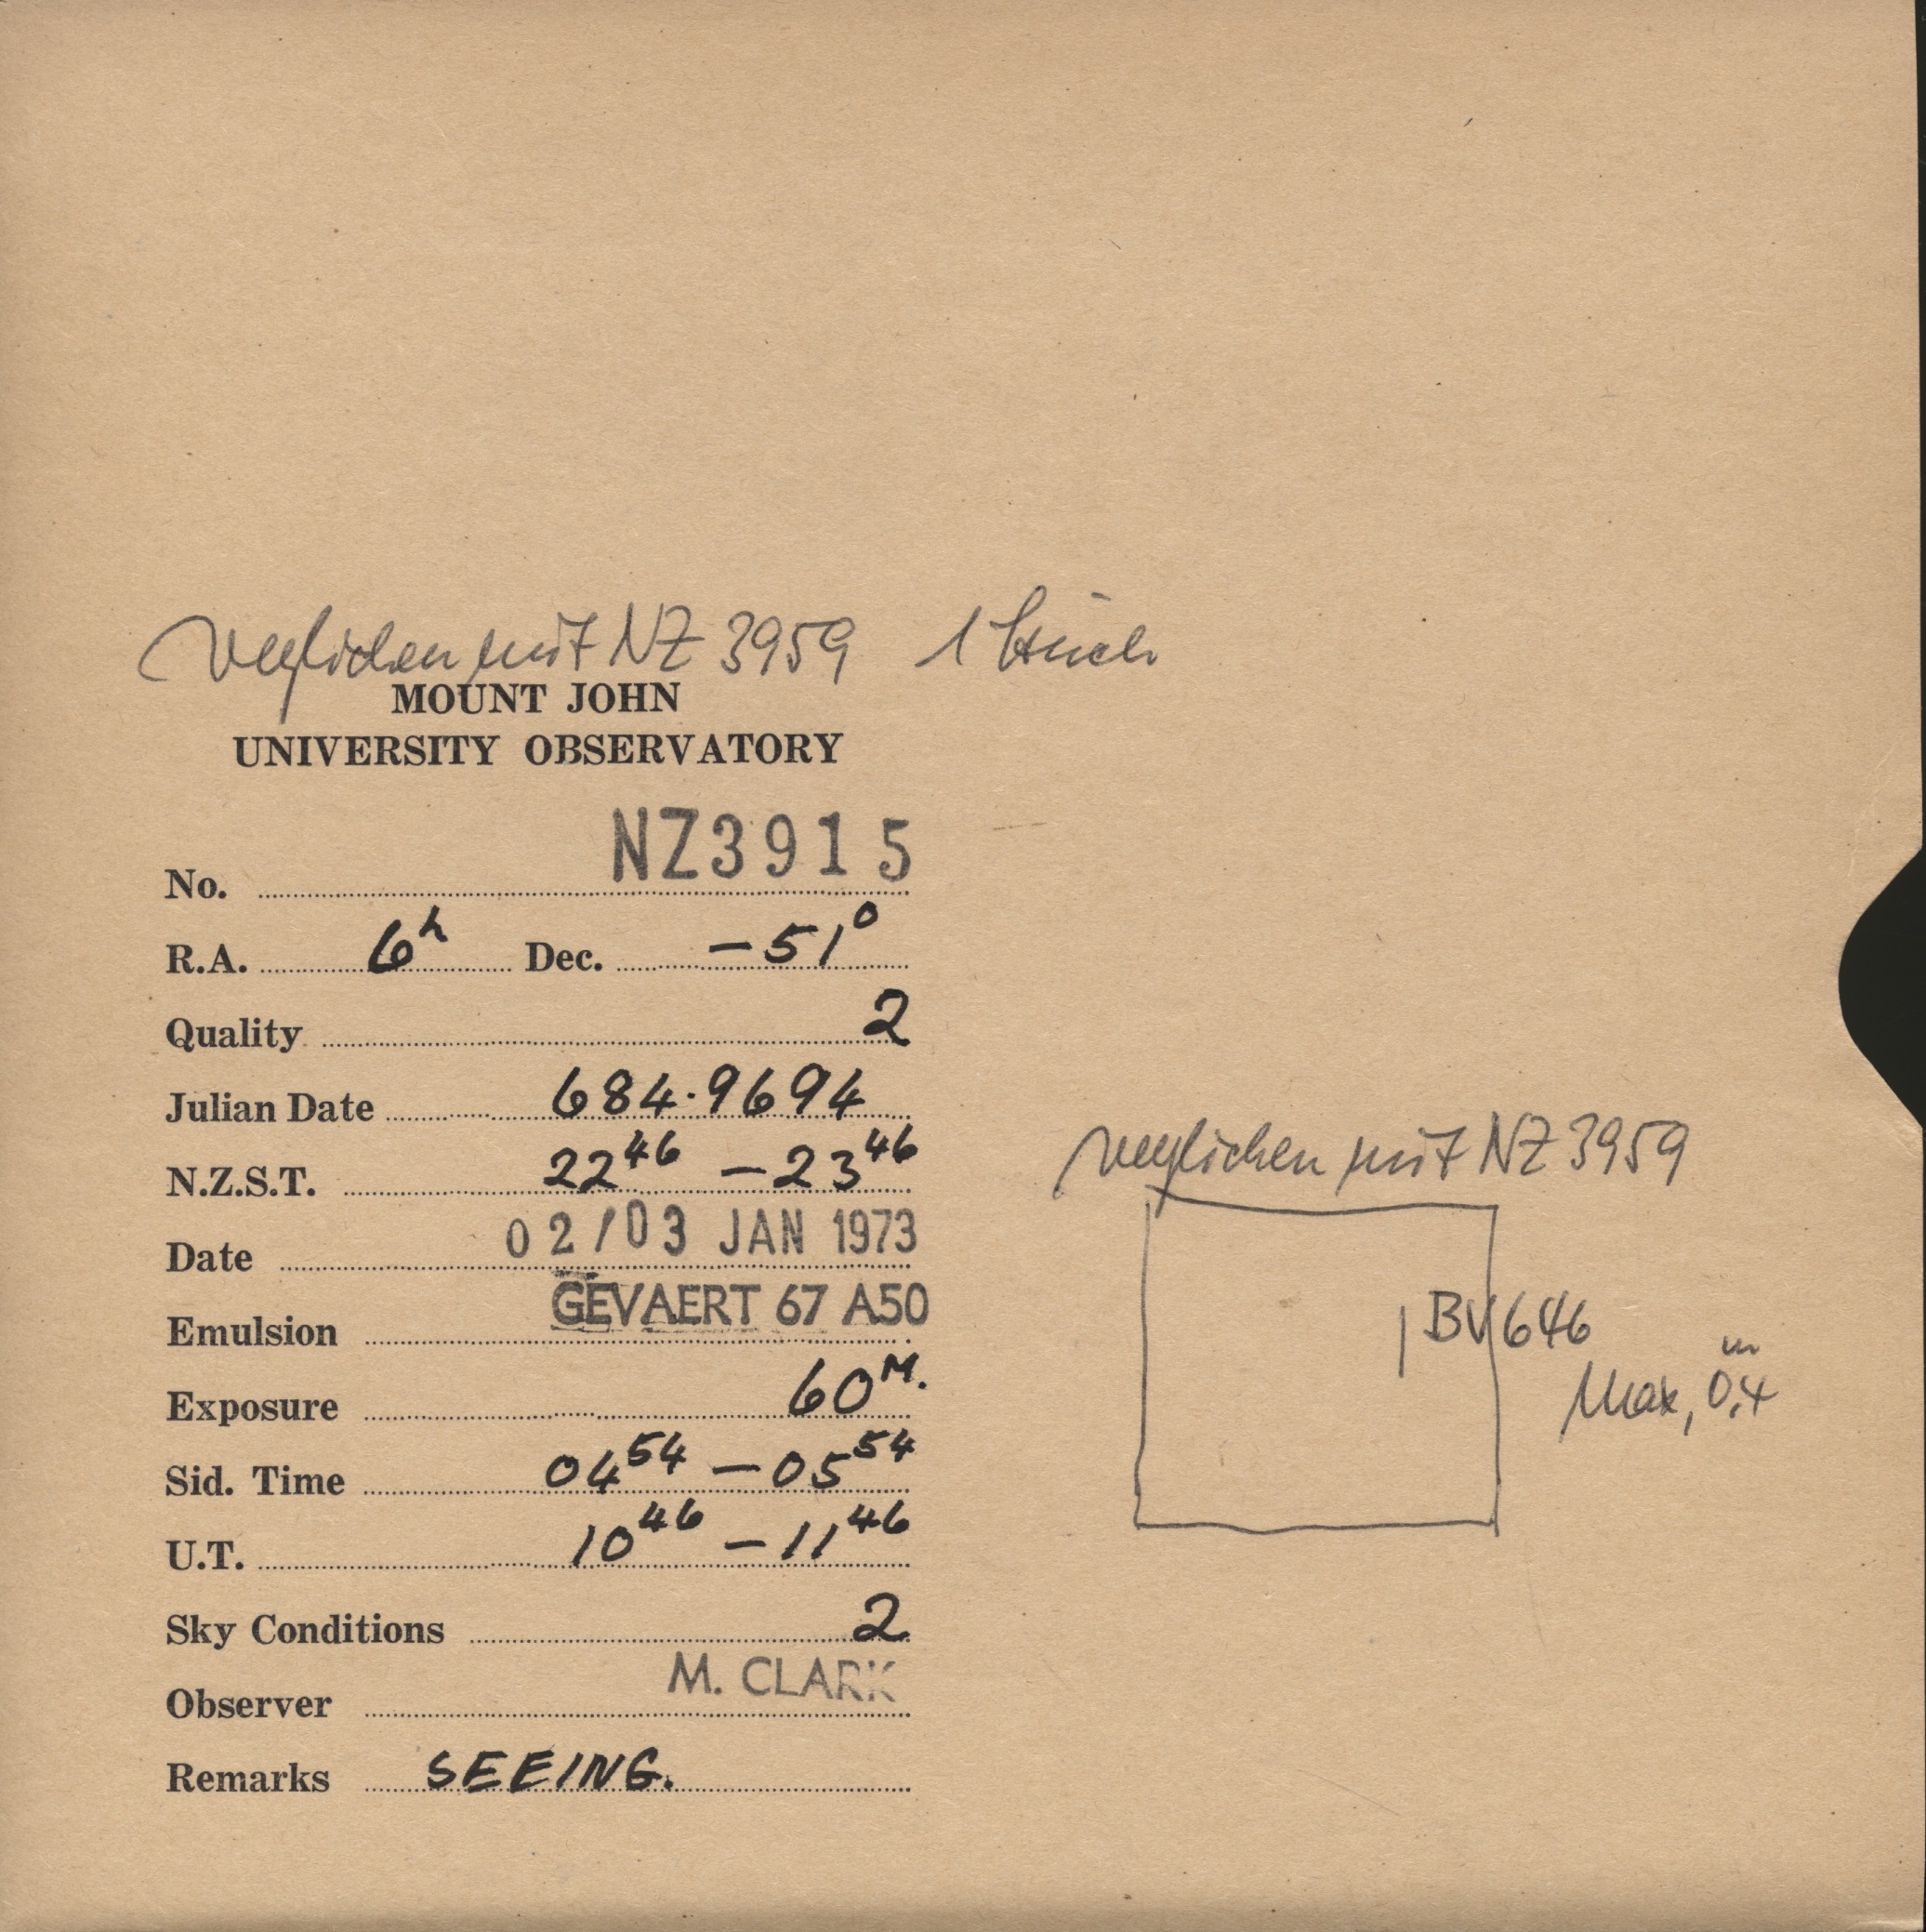 verglichen mit NZ 3959 1 Stück
MOUNT JOHN
UNIVERSITY OBSERVATORY
No. NZ3915
R.A. 6h Dec. -51°
Quality 2
Julian Date 684.9694
N.Z.S.T. 22 46 - 23 46
Date 02/03 JAN 1973
Emulsion GEVAERT 67 A50
Exposure 60M.
Sid. Time 04 54 - 05 54
U.T. 10 46 - 11 46
Sky Conditions 2
Observer M. CLARK
Remarks SEEING.
verglichen mit NZ 3959
BV 646
Max, 0,4 m